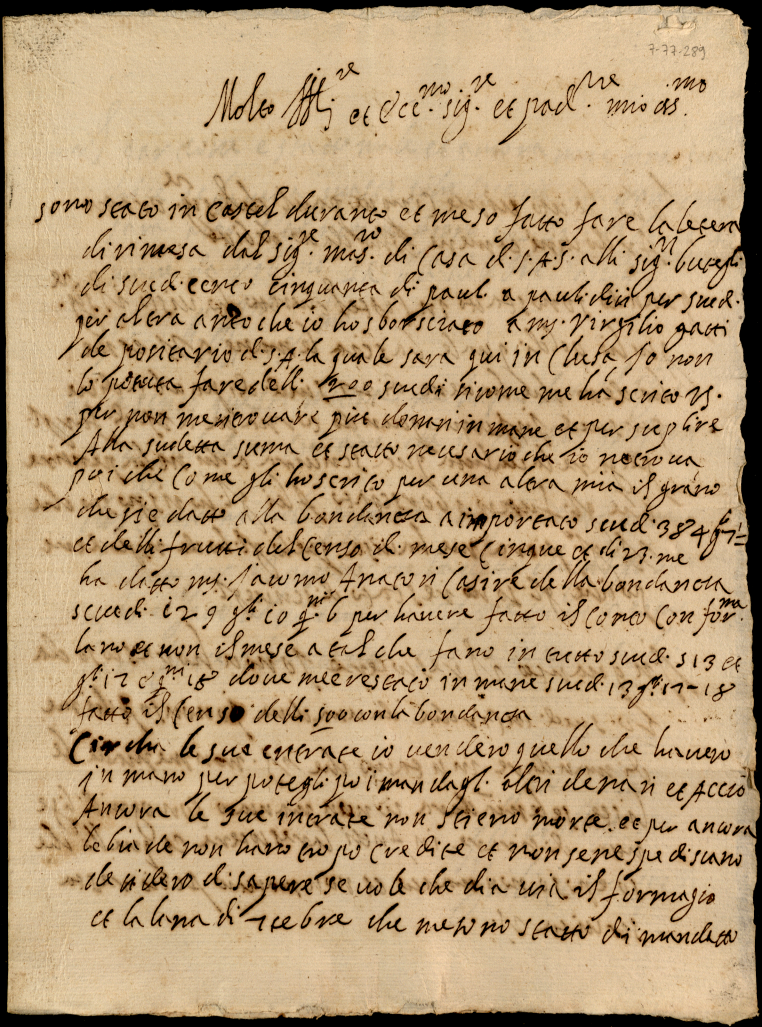 7-77-289
Molto Ill.re et Ecc.mo sig.re et pad.ne mio oss.mo
sono stato in Castel durante et meso fatto fare la letera
di rimesa dal sig.re mas.ro di Casa d. S. A. S. alli sig.ri butegli
di scud. cento cinquanta di paul. a pauli dieci per scud.
per altra anto che io ho sborsciato a ms. Virgilio gatti
de poritario d. S. A. la quale sara qui in Clusa Io non
lo potuta fare delli 200 scudi sicome me ha scrito VS.
per non me ritrovare piu denari in mane et per suplire
Alla sudetta suma et stato necesario che io
poi che Come gli ho scrito per una altra mia il grano
che si e datto alla bondantia a inportato scud. 384
et delli frutti del Censo di mese Cinque et di 23 me
ha datto ms. Jacomo Anatori Casire della bondantia
scudi 129 g.i 10 q.ni 6 per havere fatto il Conto Con for.ma
lano et non il mese a tal che fano in tutto scud. 513 et
g.i 12 q.ni 18 dove me e restato in mane scud. 13 g.i 12 - 18
fatto il Censo delli 500 con la bondantia
Circha le sue entrate io vendero quello che havero
in mano per potegli poi mandagl. altri denari et Accio
Ancora le sue intrate non stieno morte. et per ancora
le biade non hano tropo credite et non se ne spediscano
desidero di sapere se vole che dia via il formagio
et la lana di che me sono stato di mandatto